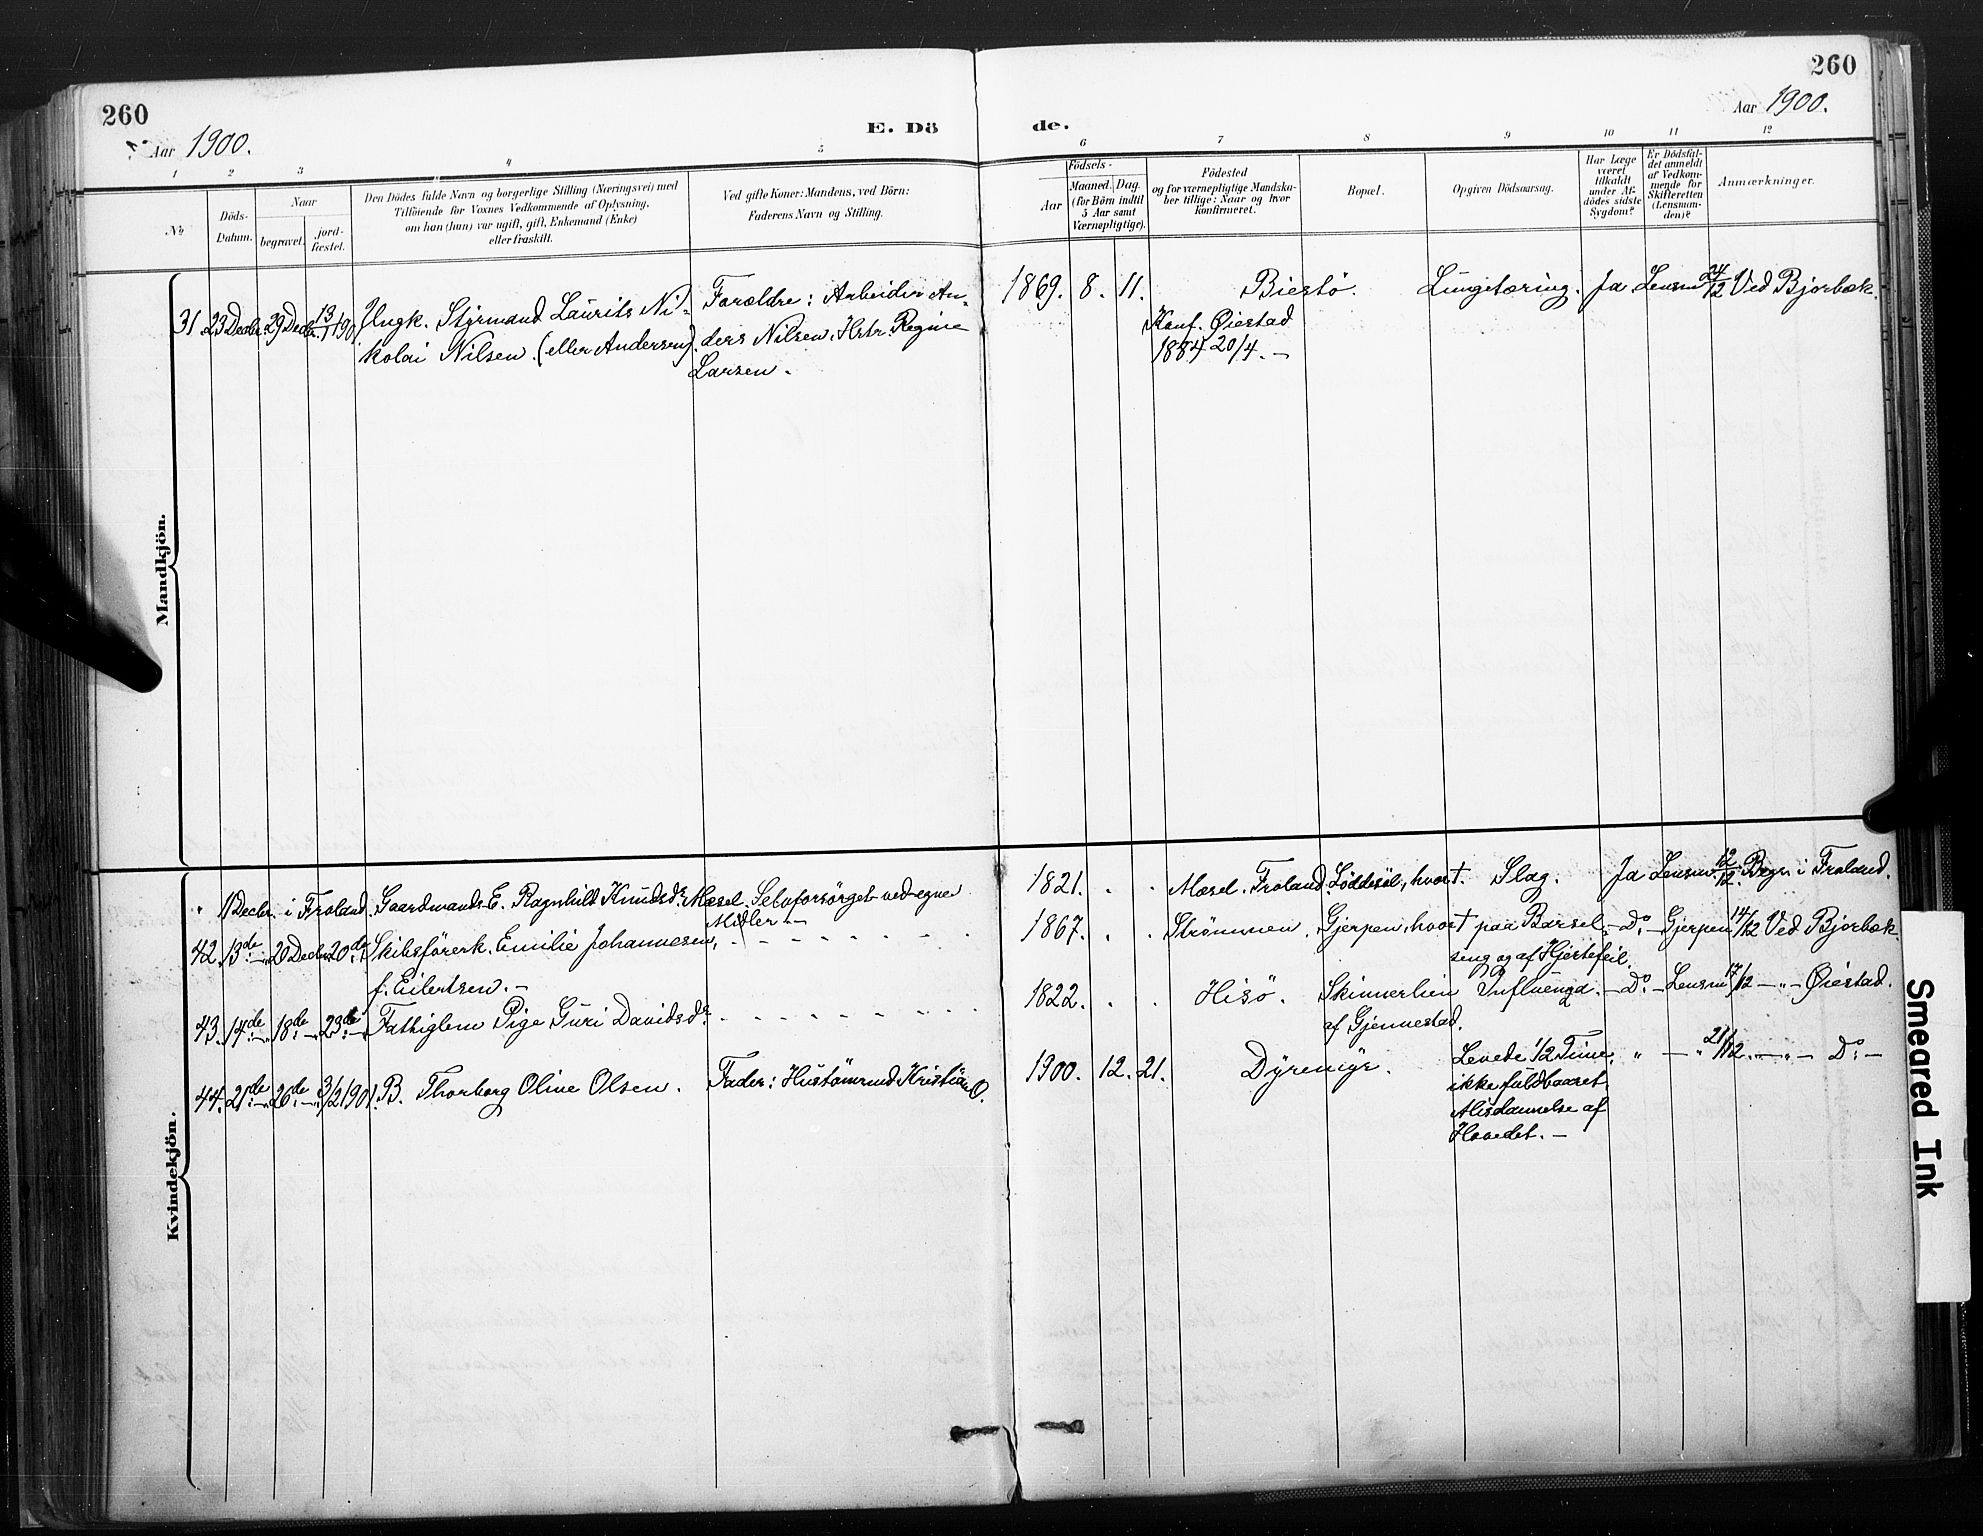 260
260
Aar 1900.
E. Dö
de.
Aar 1900.
1 2 3 4 5 6 7 8 9 10 11 12
No
Döds-
Datum.
Naar
begravet.
jord-
fæstet.
Den Dödes fulde Navn og borgerlige Stilling (Næringsvei) med
Tilföiende for Voxnes Vedkommende af Oplysning,
om han (hun) var ugift, gift, Enkemand (Enke)
eller fraskilt.
Ved gifte Koner: Mandens, ved Börn:
Faderens Navn og Stilling.
Födsels-
Aar
Maaned. Dag.
(for Börn indtil
5 Aar samt
Værnepligtige).
Födested
og for værnepligtige Mandska-
ber tillige: Naar og hvor
konfirmeret.
Bopæl.
Opgiven Dödsaarsag.
Har Læge
været
tilkaldt
under Af-
dödes sidste
Sygdom?
Er Dödsfal-
det anmeldt
af Vedkom-
mende for
Skifteretten
(Lensman-
den)?
Anmærkninger.
Mandkjön.
31 23 Decbr. 29 Decbr. 13/1 1901 Ungk. Styrmand Laurits Ni- Forældre: Arbeider An- 1869. 8. 11. Biestö. Lungetæring. Ja Lensm 24/12 Ved Bjorbæk.
kolai Nilsen. (eller Andersen). ders Nilsen. Hstr. Regine Konf. Øiestad
Larsen. 1884 20/4. –
Kvindekjön.
" 1 Decbr. i Froland. Gaardmands E. Ragnhild Knudsdr. Mæsel. Selvforsörget ved egne 1821. . . Mæsel. Froland. Löddesöl, hvort. Slag. Ja Lensm 12/12. Begr. i Froland.
Midler –
42. 13de –"– 20 Decbr. 20de. Skibsförerk. Emilie Johannesen, - - - - - - - - 1867. . . Strömmen. Gjerpen, hvort paa Barsel- – Do. – Gjerpen 14/12 Ved Bjorbæk.
f. Eilertsen. – seng og af Hjertefeil.
43. 14de –"– 18de –"– 23de –"– Fattiglem Pige Guri Davidsdr. - - - - - - - - 1822. . . Hisö. Skinnerlien Influenza. – Do. – Lensm 17/12 –"– Øiestad.
af Gjennestad.
44. 21de –"– 26de –"– 3/2 1901. B. Thorborg Oline Olsen. Fader: Hustömrmd Kristian O. 1900. 12. 21. Dyremyr. Levede 1/2 Time, " – " 21/12. –"– Do. –
ikke fuldbaaret.
Misdannelse af
Hovedet. –
Smeared Ink